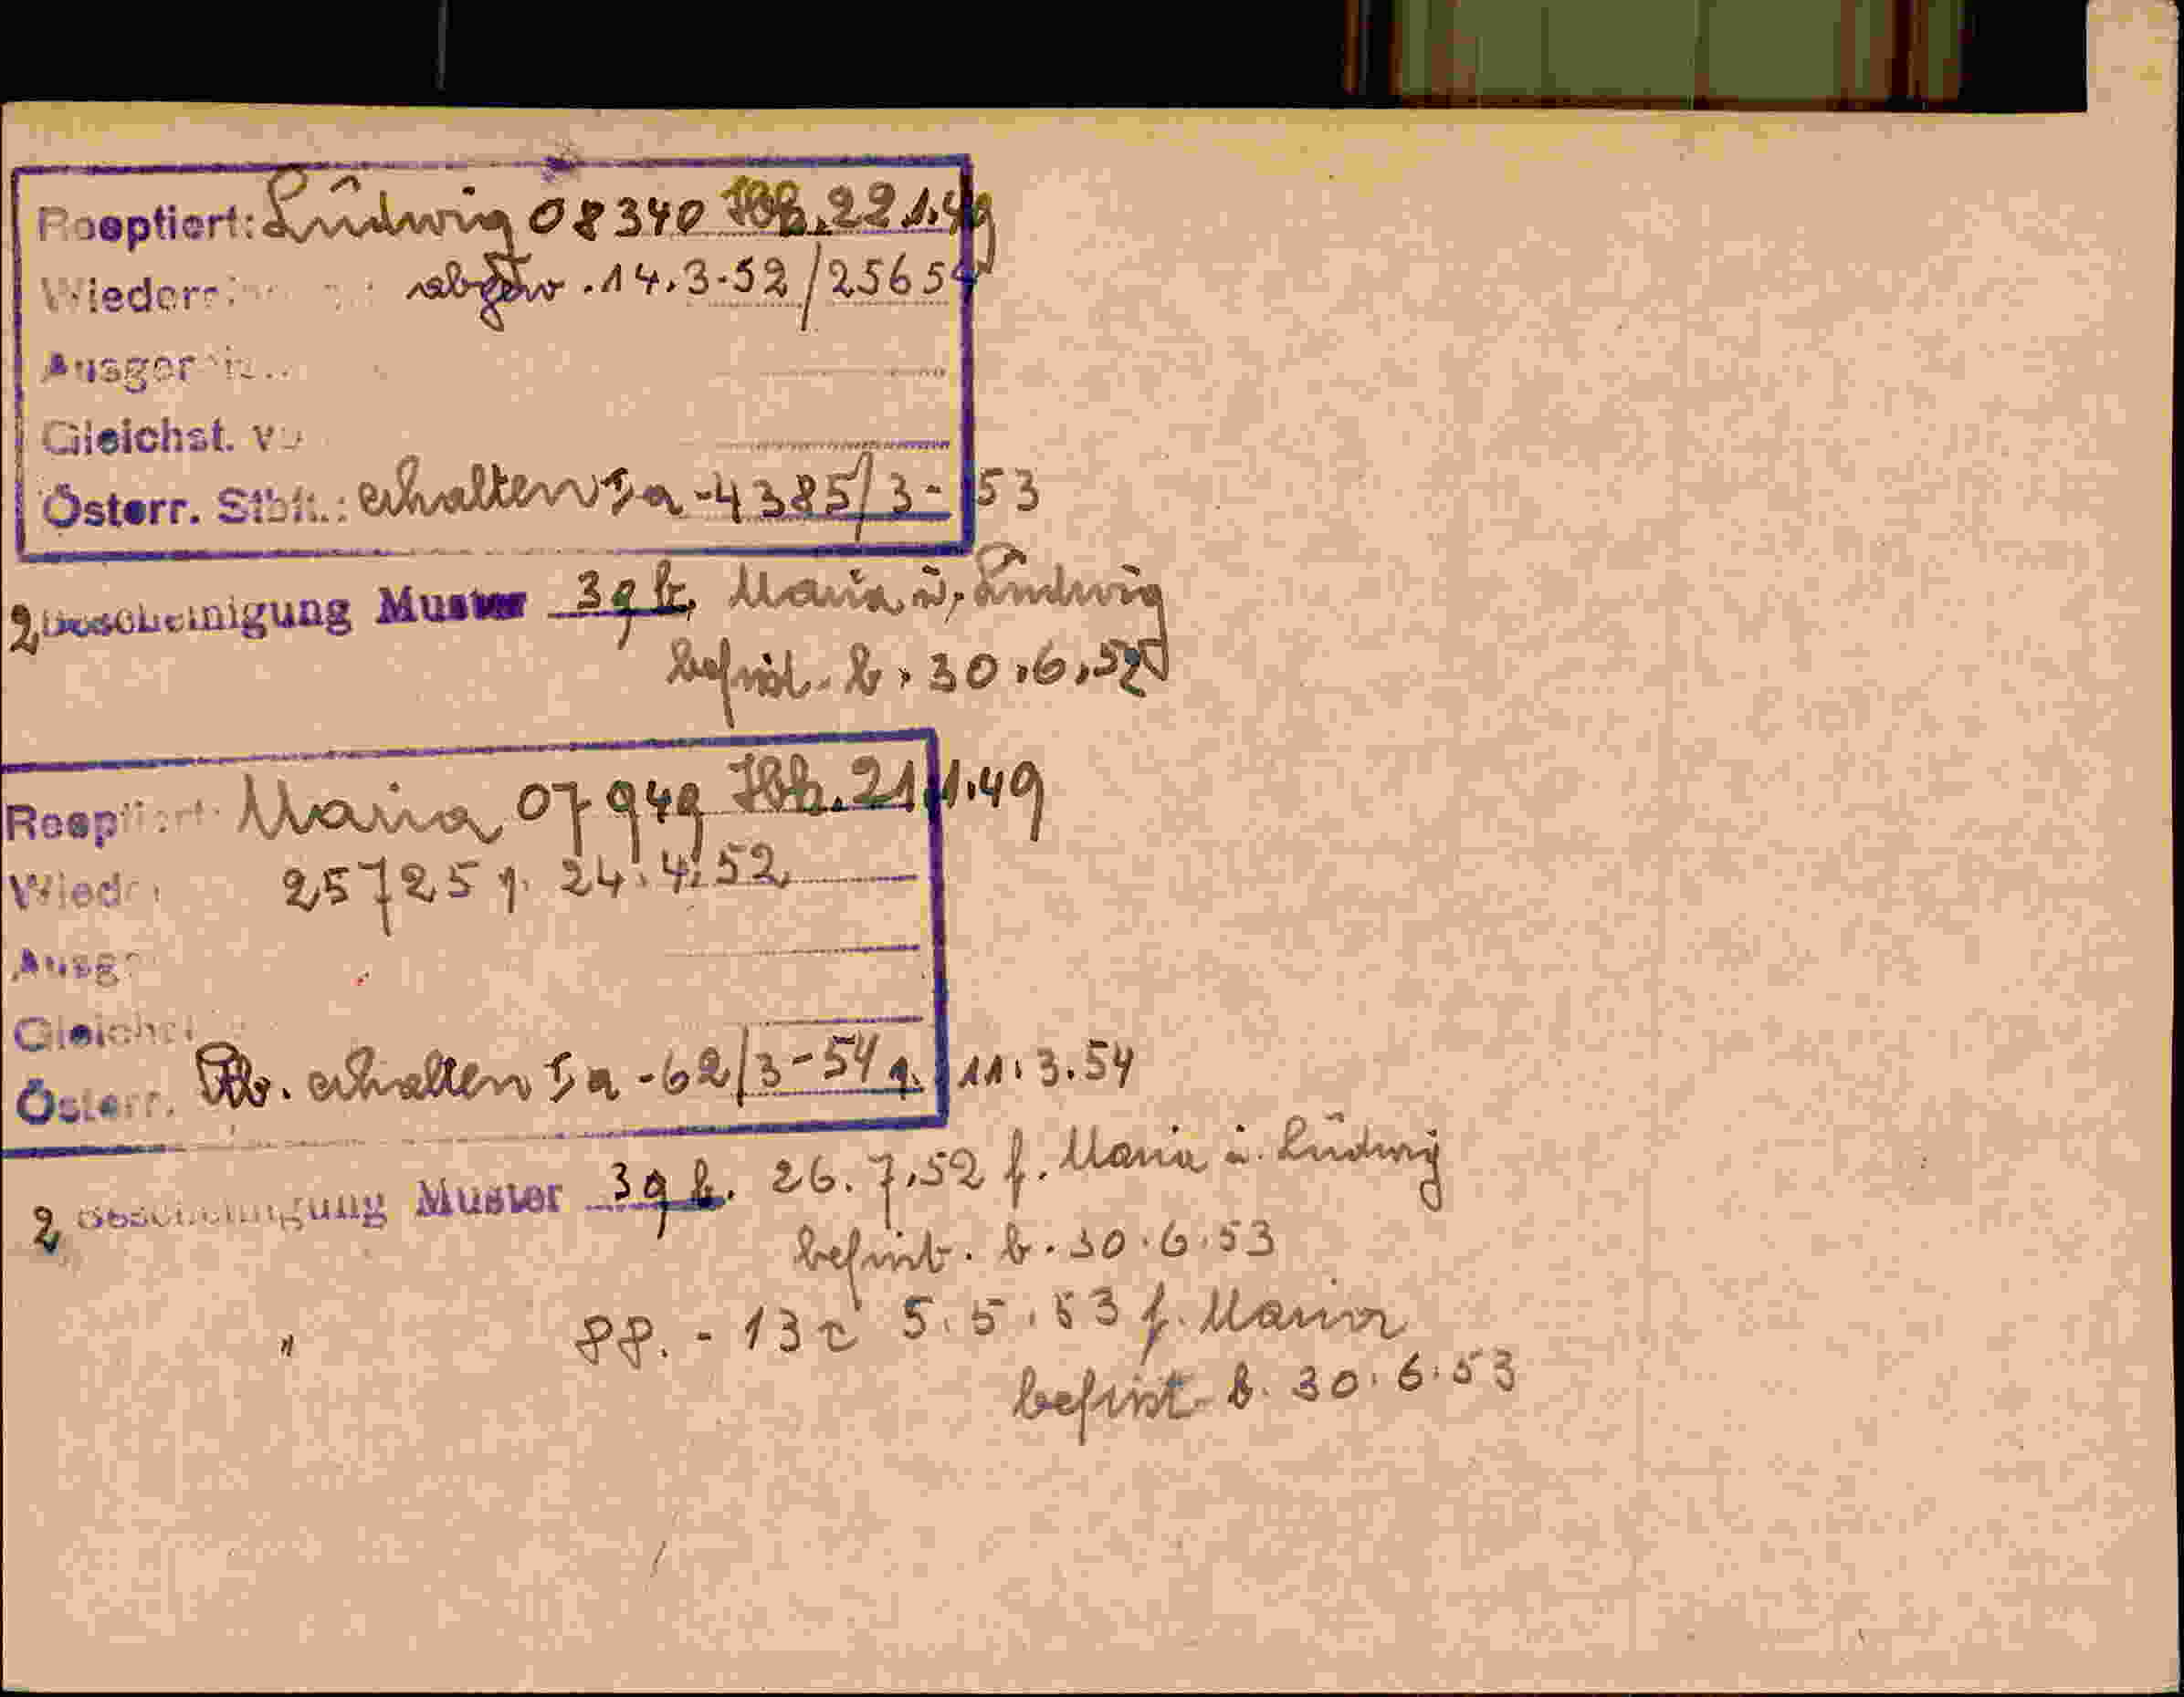 Reoptiert: Ludwig 08340 Ibk. 22.1.49
abgew. 14.3.52/25654
Gleichst.
Österr. Stbft.: erhalten Ia-4385/3-53
2 Bescheinigung Muster 39 b. Maria u. Ludwig
befrist. b. 30.6.52
Reoptiert: Maria 07949 Ibk. 21.1.49
25725 v. 24.4.52
Gleichst.
Österr. erhalten Ia-62/3-54 v. 11.3.54
2 Bescheinigung Muster 39 b. 26.7.52 f. Maria u. Ludwig
befrist. b. 30.6.53
" 88.-13c 5.5.53 f. Maria
befrist b. 30.6.53